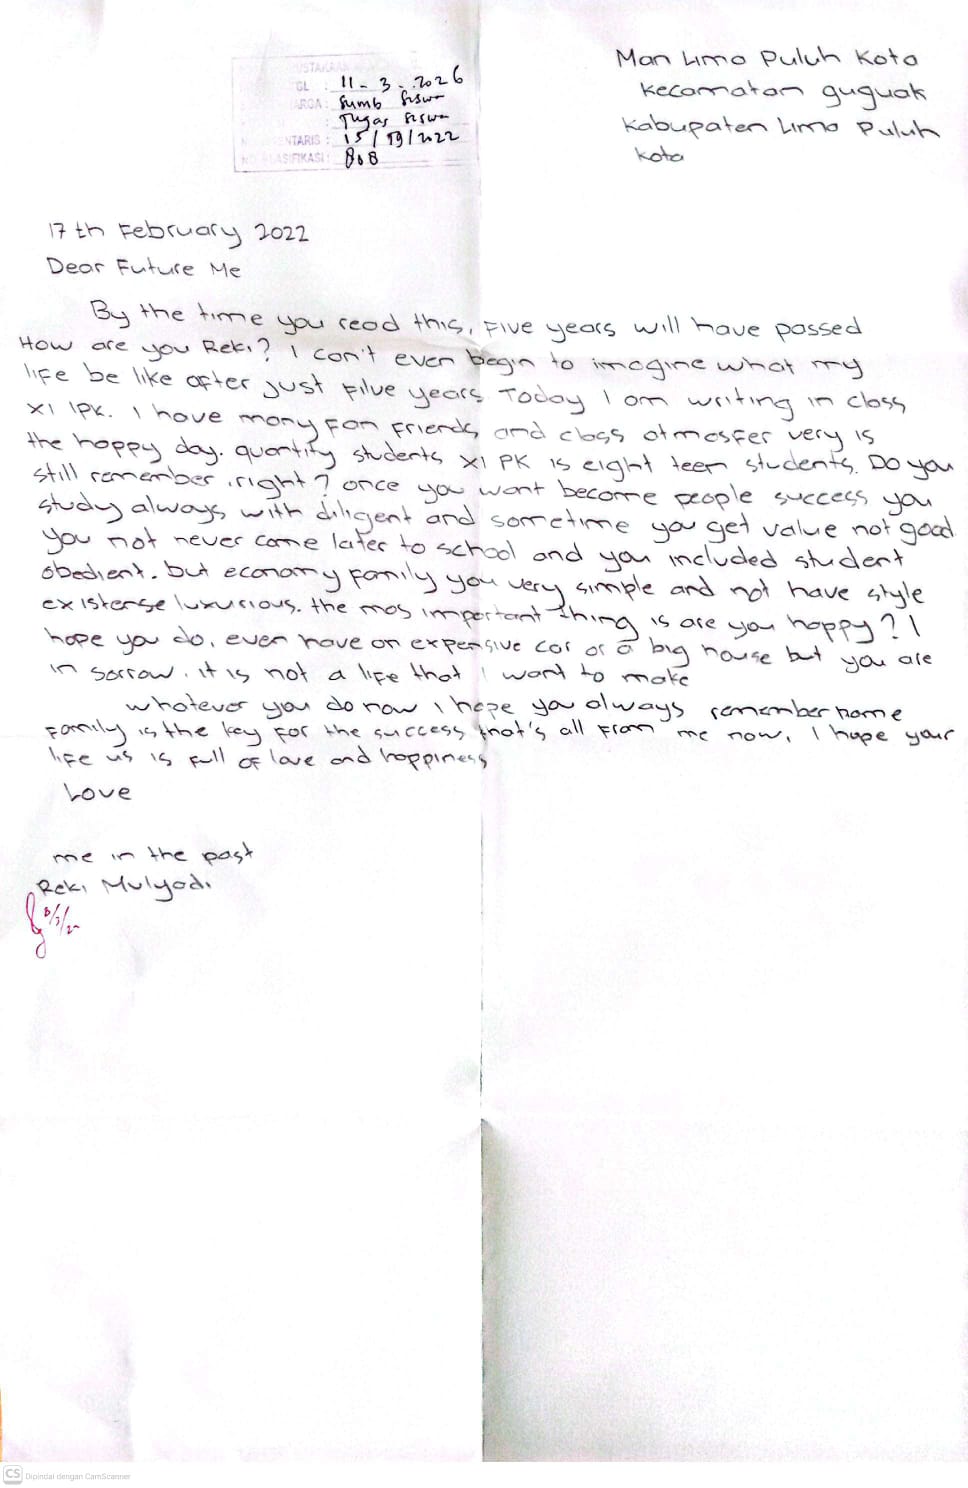 Man Limo Puluh Kota
Kecamatan guguak
Kabupaten Limo Puluh
Kota
USTAKAAN
GL : 11 - 3 - 2026
ARGA : Sumb Siswa
: Tugas Siswa
ENTARIS : 15/19/2022
ASIFIKASI : 808
17 th February 2022
Dear Future Me
By the time you read this, Five years will have passed
How are you Reki? I can't even begin to imagine what my
life be like after just filve years Today I am writing in class
XI IPK. I have many Fan Friends and class atmosfer very is
the happy day. quantity students XI PK is eight teen students. Do you
still remember .right? once you want become people success you
study always with diligent and sometime you get value not good
you not never come later to school and you included student
obedient. but economy family you very simple and not have style
existense luxurious. the mos important thing is are you happy? I
hope you do, even have an expensive car or a big house but you are
in sorrow. it is not a life that I want to make
whatever you do now I hope you always remember home
Family is the key For the success that's all From me now, I hope your
life us is full of love and happiness
Love
me in the past
Reki Mulyadi
CS Dipindai dengan CamScanner